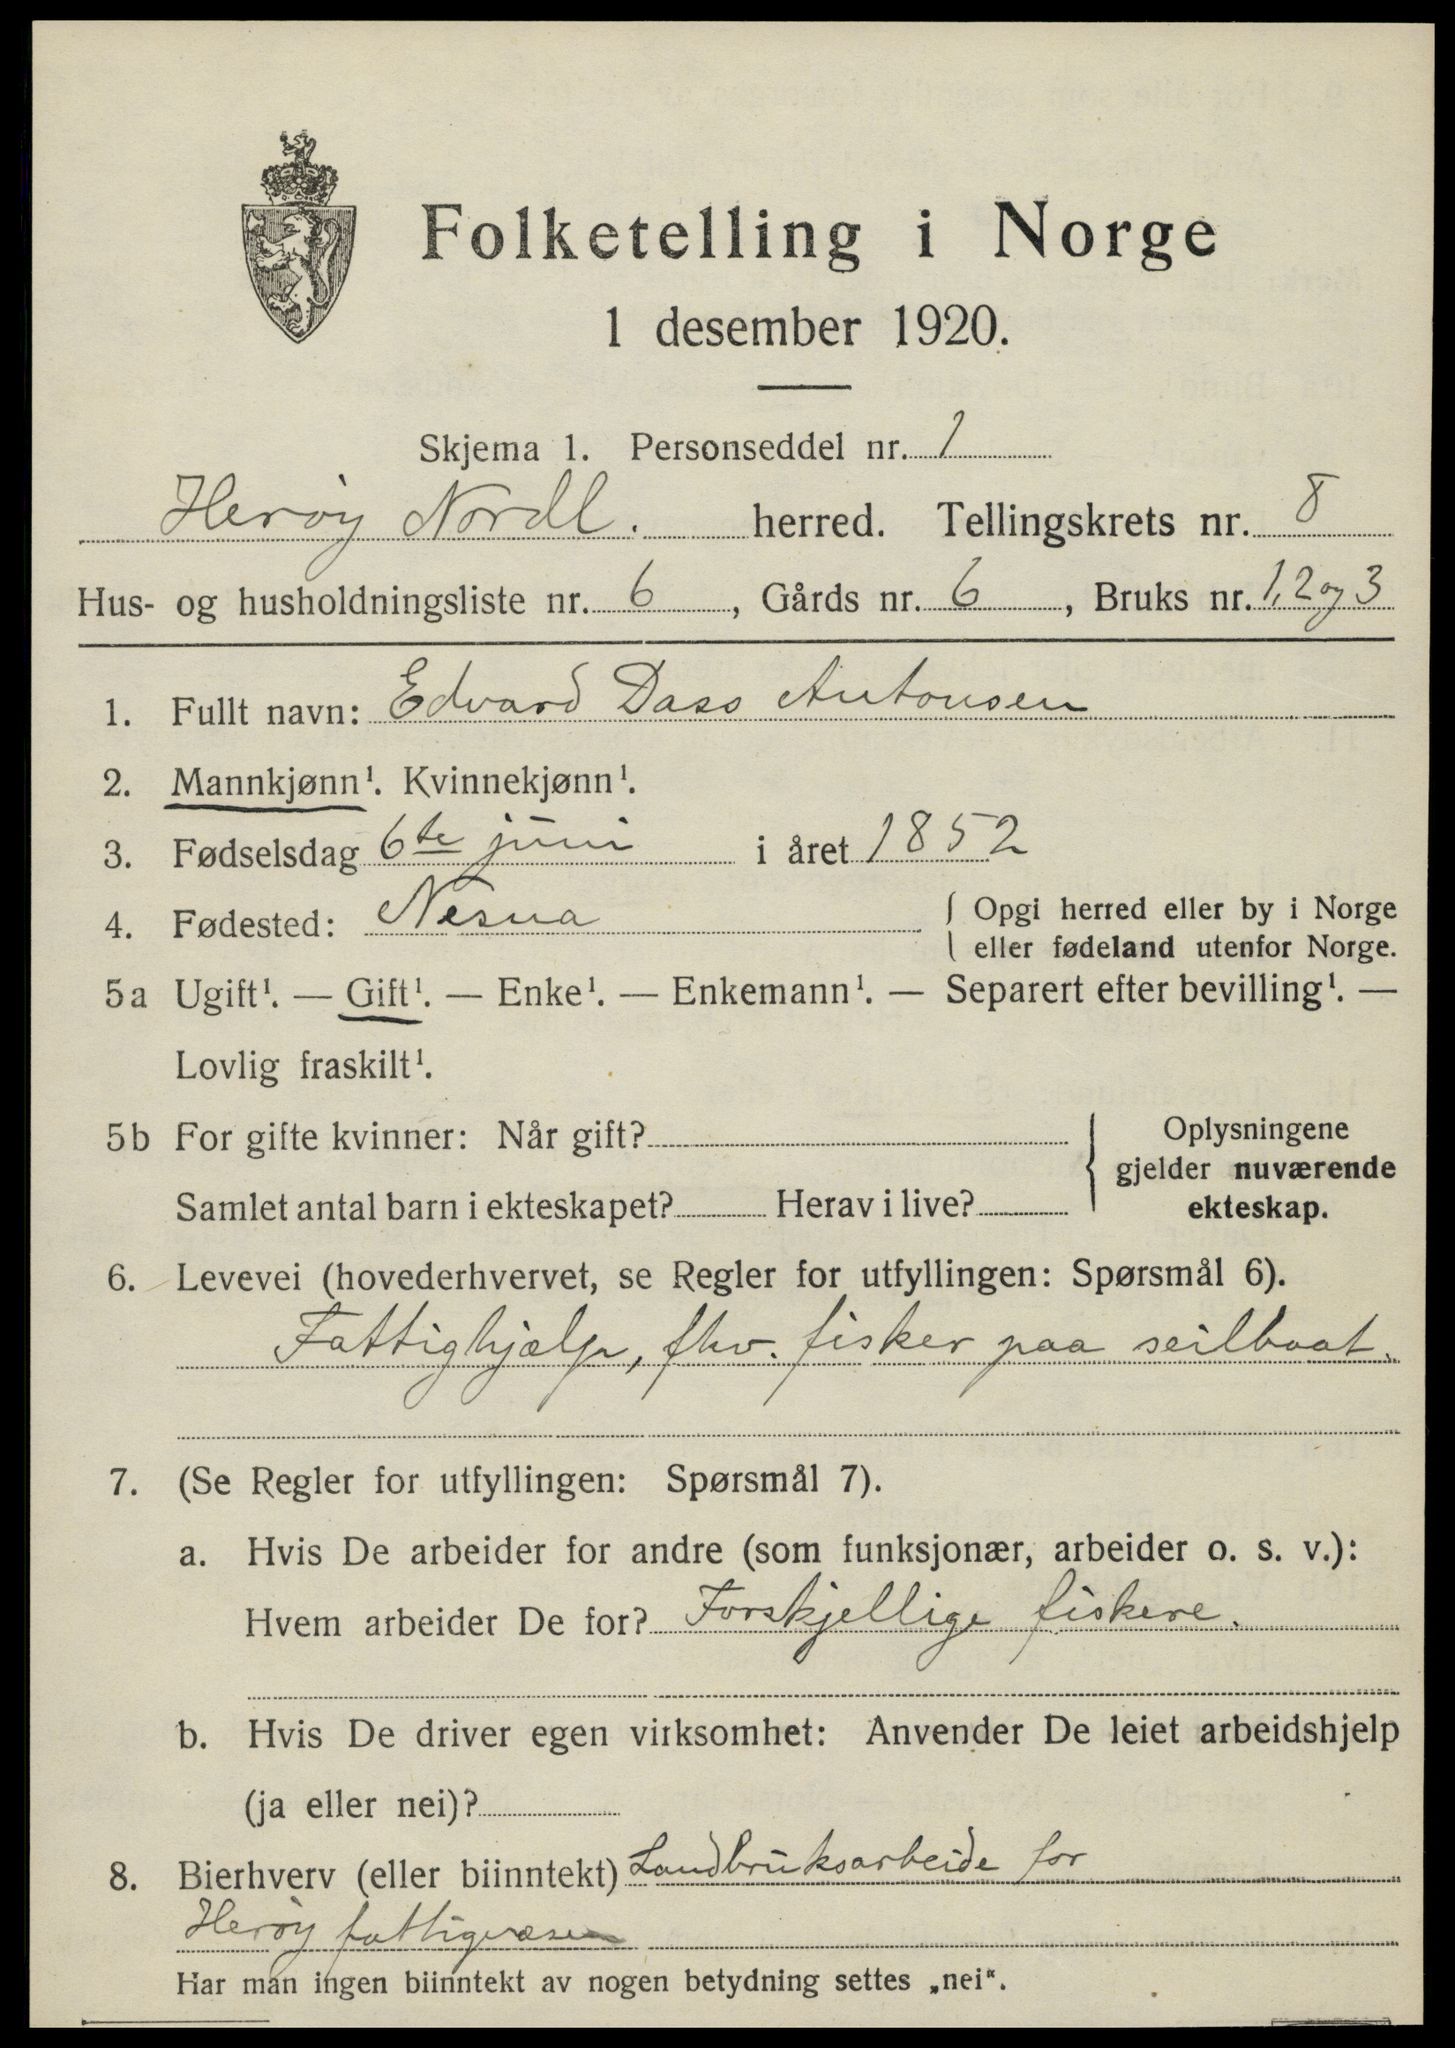 Folketelling i Norge
1 desember 1920.
Skjema 1. Personseddel nr. 1
Herøy Nordl. herred. Tellingskrets nr. 8
Hus- og husholdningsliste nr. 6, Gårds nr. 6, Bruks nr. 1, 2 og 3
1. Fullt navn: Edvard Dass Antonsen
2. Mannkjønn¹. Kvinnekjønn¹.
3. Fødselsdag 6te juni i året 1852
4. Fødested: Nesna { Opgi herred eller by i Norge
eller fødeland utenfor Norge.
5a Ugift¹. — Gift¹. — Enke¹. — Enkemann¹. — Separert efter bevilling¹. —
Lovlig fraskilt¹.
5b For gifte kvinner: Når gift? { Oplysningene
gjelder nuværende
Samlet antal barn i ekteskapet? Herav i live? ekteskap.
6. Levevei (hovederhvervet, se Regler for utfyllingen: Spørsmål 6).
Fattighjælp, fhv. fisker paa seilbaat.
7. (Se Regler for utfyllingen: Spørsmål 7).
a. Hvis De arbeider for andre (som funksjonær, arbeider o. s. v.):
Hvem arbeider De for? Forskjellige fiskere.
b. Hvis De driver egen virksomhet: Anvender De leiet arbeidshjelp
(ja eller nei)?
8. Bierhverv (eller biinntekt) Landbruksarbeide for
Herøy fattigvæsen
Har man ingen biinntekt av nogen betydning settes „nei".